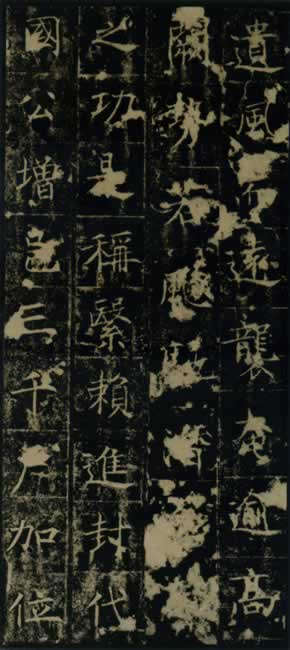 遺風遠襲奄逾高
關勢若飈馭濟
之功是稱緊賴進封代
國公增邑三千戶加位